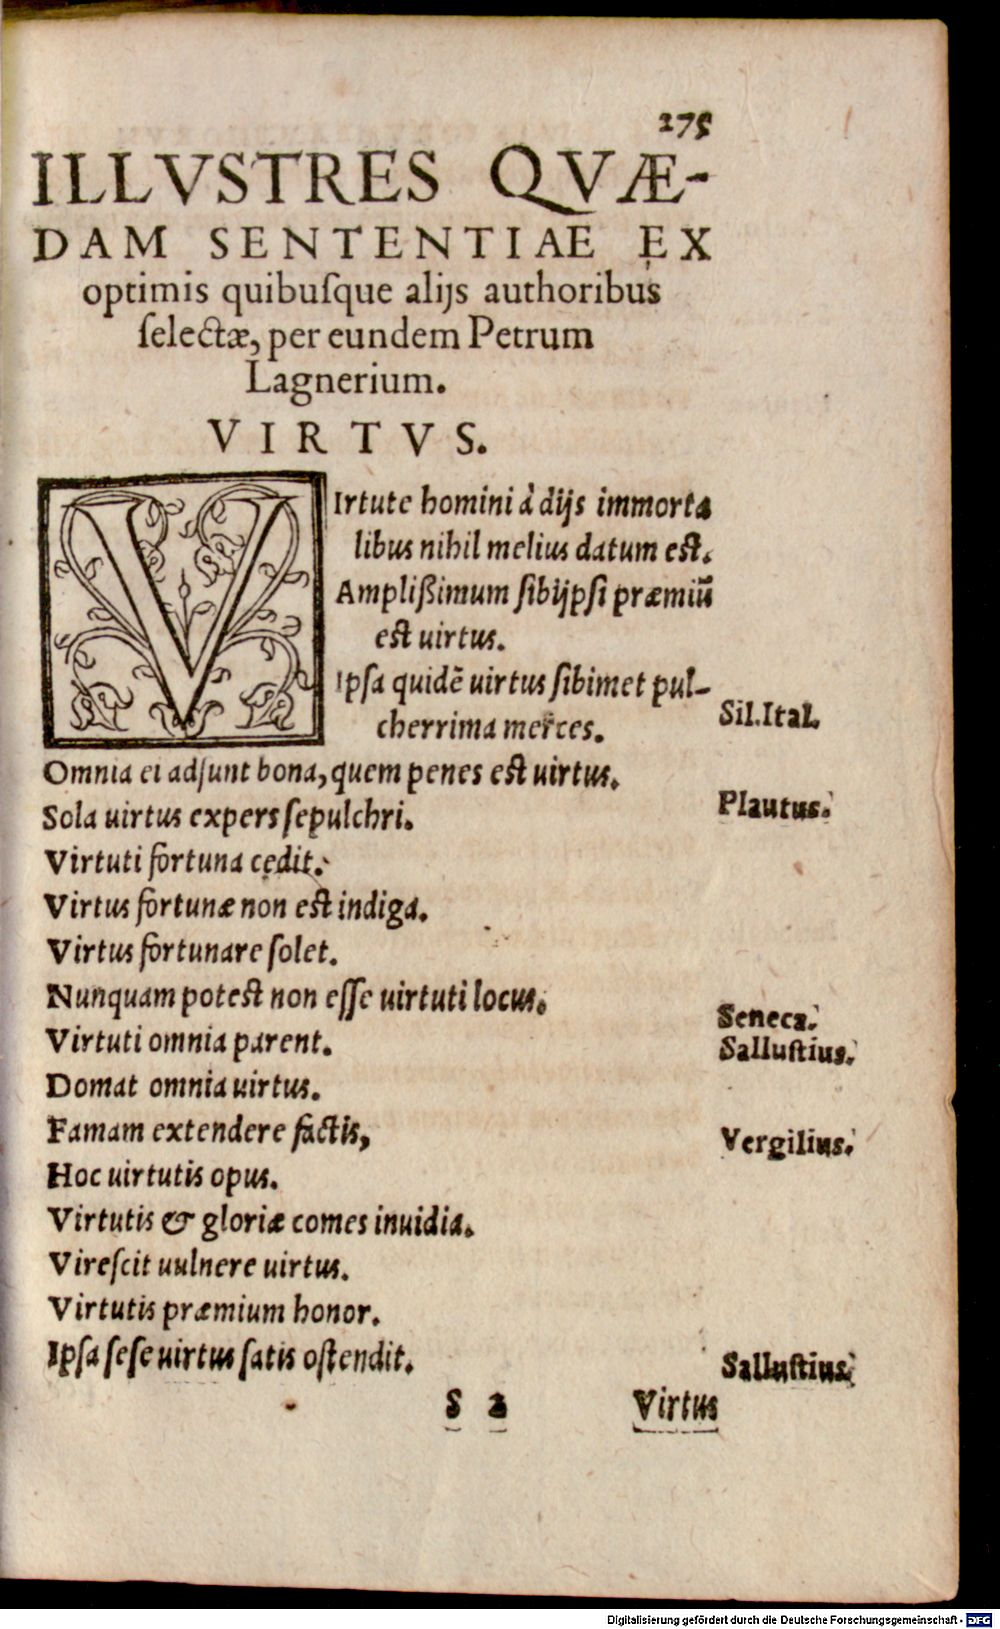 275
ILLVSTRES QVÆ-
DAM SENTENTIAE EX
optimis quibuſque alijs authoribus
ſelectæ, per eundem Petrum
Lagnerium.
VIRTVS.
VIrtute homini à dijs immorta
libus nihil melius datum eſt.
Ampliſsimum ſibijpſi præmiū
eſt uirtus.
Ipſa quidē uirtus ſibimet pul-
cherrima merces. Sil.Ital.
Omnia ei adſunt bona, quem penes eſt uirtus.
Sola uirtus expers ſepulchri. Plautus.
Virtuti fortuna cedit.
Virtus fortunæ non eſt indiga.
Virtus fortunare ſolet.
Nunquam poteſt non eſſe uirtuti locus.
Virtuti omnia parent. Seneca.
Domat omnia uirtus. Salluſtius.
Famam extendere factis,
Hoc uirtutis opus. Vergilius.
Virtutis & gloriæ comes inuidia.
Vireſcit uulnere uirtus.
Virtutis præmium honor.
Ipſa ſeſe uirtus ſatis oſtendit. Salluſtius.
S 2 Virtus
Digitalisierung gefördert durch die Deutsche Forschungsgemeinschaft - DFG